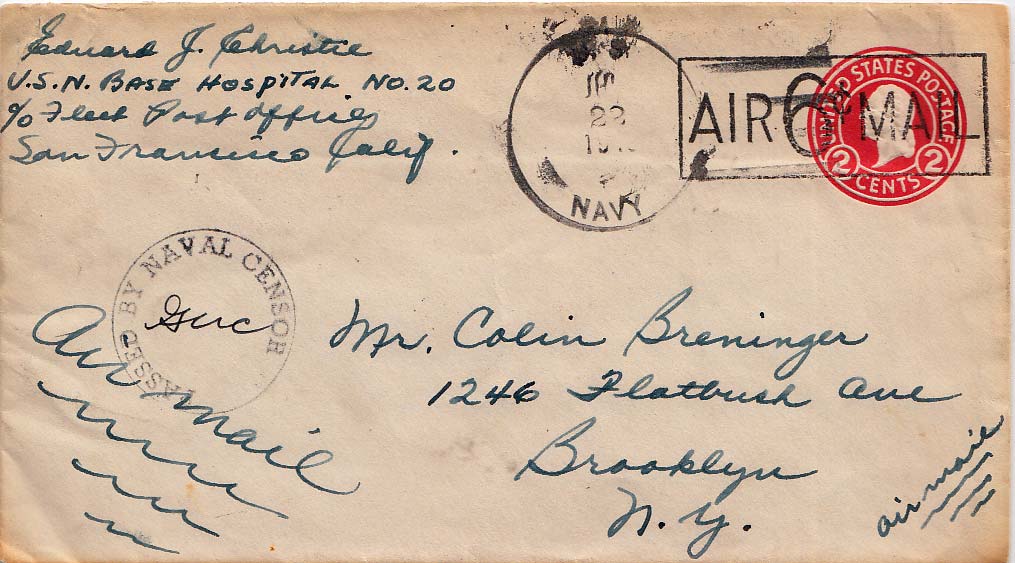 Edward J. Christie
U.S.N. BASE HOSPITAL NO. 20
c/o Fleet Post Office
San Francisco Calif.
22
NAVY
AIR 6¢ MAIL
UNITED STATES POSTAGE
2 CENTS 2
PASSED BY NAVAL CENSOR
Air mail
Mr. Colin Breninger
1246 Flatbush Ave
Brooklyn
N.Y.
air mail